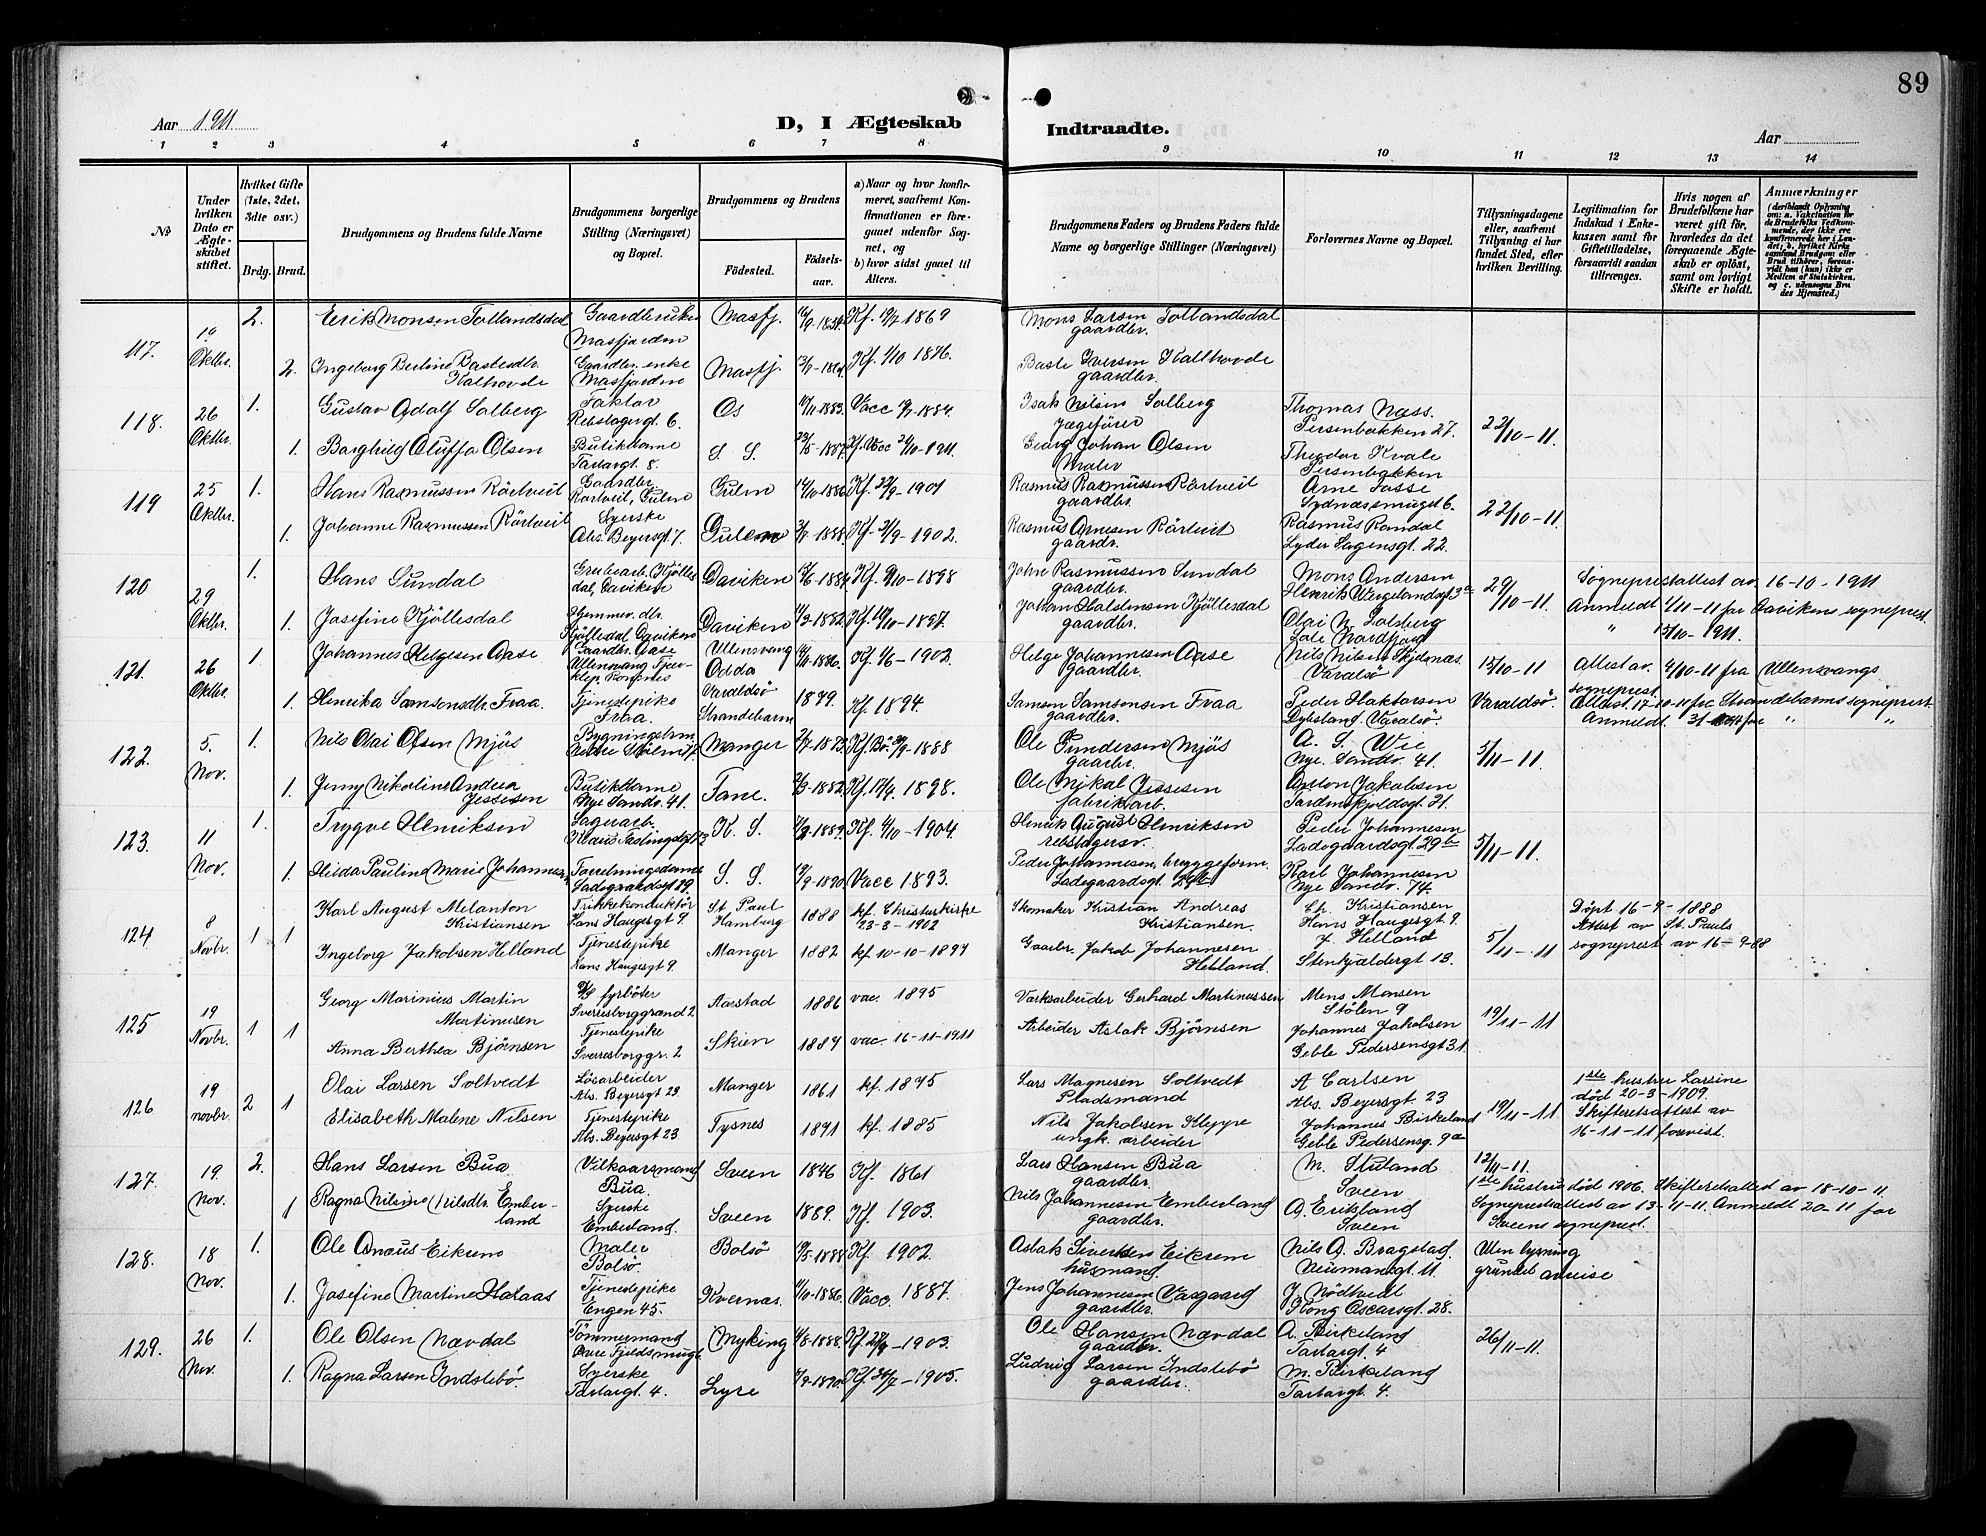 89
Aar 1911
D, I Ægteskab Indtraadte.
Aar
1 2 3 4 5 6 7 8 9 10 11 12 13 14
No
Under hvilken Dato er Ægteskabet stiftet.
Hvilket Gifte (1ste, 2det, 3die osv.)
Brdg. Brud.
Brudgommens og Brudens fulde Navne
Brudgommens borgerlige Stilling (Næringsvei) og Bopæl.
Brudgommens og Brudens
Fødested. Fødselsaar.
a) Naar og hvor konfirmeret, saafremt Konfirmationen er foregaaet udenfor Sognet, og
b) hvor sidst gaaet til Alters.
Brudgommens Faders og Brudens Faders fulde Navne og borgerlige Stillinger (Næringsvei)
Forlovernes Navne og Bopæl.
Tillysningsdagene eller, saafremt Tillysning ei har fundet Sted, efter hvilken Bevilling.
Legitimation for Indskud i Enkekassen samt for Giftetilladelse, forsaavidt saadan tiltrænges.
Hvis nogen af Brudefolkene har været gift før, hvorledes da det foregaaende Ægteskab er opløst, samt om lovligt Skifte er holdt.
Anmærkninger
117. 19 Oktbr. 2. Erik Monsen Tollandsdal Gaardbruker Masfjorden Masfj. Kf. 1869 Mons Larsen Tollandsdal gaardbr.
2. Ingeborg Berline Bastesdtr. Kalhovde Gaardbr. enke Masfjorden Masfj. Kf. 1/10 1876. Baste Iversen Kalhovde gaardbr.
118. 26 Oktbr. 1. Gustav Adolf Solberg Faktor Rebslagergt 6. Os 1883. Vacc 1884. Isak Nilsen Solberg Thomas Næss. Persenbakken 27. 22/10-11.
1. Borghild Oluffa Olsen Butikdame Tartargt. 8. S. S. 1887. Kf. Vacc 1911. Georg Johan Olsen Maler Theodor Kvale Persenbakken
119 25 Oktbr. 1. Hans Rasmussen Rörtveit Gaardbr. Rörtveit, Gulen Gulen 1886 Kf. 1901 Rasmus Rasmussen Rörtveit gaardbr. Arne Sasse Sydnæssmuget 6. 22/10-11.
1. Johanne Rasmussen Rörtveit Syerske Abs. Beyersgt 7. Gulen 1888. Kf. 1902. Rasmus Arnesen Rörtveit gaardbr. Rasmus Randal Lyder Sagensgt. 22.
120 29 Oktbr. 1. Hans Sundal Grubearb. Kjöllesdal, Daviken Daviken Kf. 1898 John Rasmussen Sundal gaardbr. Mons Andersen Henrik Wergelandsgt 3a 29/10-11. Sogneprestattest av 16-10-1911
1. Josefine Kjöllesdal Hjemmev. dtr. Kjöllesdal Daviken Daviken 1882. Kf. 1897. Johan Holstensen Kjöllesdal gaardbr. Olai N. Solberg Anmeldt 1/11-11 for Daviken sogneprest.
" 15/10-1911.
121. 26 Oktbr. 1. Johannes Helgesen Aase Gaardbr. Aase Ullensvang Ullensvang Odda 1886. Kf. 1902. Helge Johannesen Aase gaardbr. Nils Nilsen Skjelnæs. Varalsö 15/10-11 Attest av 4/10-11 fra Ullensvangs sogneprest
1. Henrika Samsonsdtr. Fraa Tjenestepike Fraa. Varaldsö Strandebarm 1879. Kf. 1894. Samson Samsonsen Fraa gaardbr. Peder Haktorsen Varalsö. Varaldsö. Attest 17-10-11 fra Strandebarms sogneprest
Anmeldt 31- for " "
122. 5. Nov. 1. Nils Olai Olsen Mjös Manger Kf. Bö. 1888 Ole Gundersen Mjös gaardbr. A. S. Wie Nye Sandv. 41. 5/11-11.
1. Jenny Nikoline Andrea Jessesen Butikdame Nye Sandv. 41. Tane. 1882. Kf. 1898. Ole Mikal Jessesen fabrikarb. Anton Jakobsen Tordenskjoldsgt. 21.
123. 11 Nov. 1. Trygve Henriksen Lagerarb. K. S. 1889. Kf. 1904. Henrik August Henriksen rebslagersv. Peder Johannesen Ladegaardsgt 29b 5/11-11.
1. Hilda Pauline Marie Johannesen Forretningsdame Ladegaardsgt 29. S. S. 1890 Vacc 1893. Peder Johannesen, bryggeform. Ladegaardsgt. 29b Karl Johannesen Nye Sandv. 74.
124 8 Novbr. 1 1 Karl August Melanton Kristiansen Trikkekonduktör Hans Haugesgt 9 St Paul Hamburg 1888 kf. Christuskirke 23-3-1902 Skomaker Kristian Andreas Kristiansen. Ch. Kristiansen Hans Haugesgt 9 5/11-11 Döpt 16-9-1888 Attest av St. Pauls sogneprest av 16-9-88
Ingeborg Jakobsen Helland Tjenestepike Hans Haugesgt 9. Manger 1882 kf 10-10-1897 Gaardbr. Jakob Johannesen Helland. J. Helland Stenkjeldergt 13.
125 19 Novbr. 1 1 Georg Marinius Martin Martinusen fyrböter Sverresborggrand 2 Aarstad 1886 vac. 1895 Værksarbeider Gerhard Martinussen Mons Monsen Stölen 9 19/11-11
Anna Berthea Björnsen Tjenestepike Sverresborggr. 2 Skien 1884 vac 16-11-1911 Arbeider Aslak Björnsen Johannes Jakobsen Geble Pedersensgt 31.
126 19 novbr. 2 1 Olai Larsen Soltvedt Lösarbeider Abs. Beyersgt 23 Manger 1861 kf. 1875 Lars Magnesen Soltvedt Pladsmand A Carlsen Abs. Beyersgt 23 19/11-11 1ste hustru Larsine död 20-3-1909.
Elisabeth Malene Nilsen Tjenestepike Abs. Beyersgt 23 Tysnes 1871 kf. 1885 Nils Jakobsen Kleppe ungk. arbeider Johannes Birkeland Geble Pedersensg. 9a Skifteretsattest av 16-11-11 forevist.
127. 19. Nov. 2. Hans Larsen Bua Vilkaarsmand Bua. Sveen 1846 Kf. 1861 Lars Hansen Bua gaardbr. M. Stuland Sveen 12/11-11. 1ste hustru död 1906. Skifteretattest av 18-10-11.
1 Ragna Nilsine Nilsdtr. Emberland Syerske Emberland. Sveen 1889. Kf. 1903. Nils Johannesen Emberland gaardbr. A. Eriksland Sveen Sogneprestattest av 13-11-11. Anmeldt 20-11 for Sveens sogneprest.
128. 18 Nov. 1. Ole Anæus Eikrem Maler Bolsö. Bolsö 1888 Kf. 1902. Aslak Sivertsen Eikrem husmand. Nils A. Bragstad. Neumansgt. 11. Uten lysning grundet avreise
1. Josefine Martine Halaas Tjenestepike Engen 45. Kvernæs. 1886. Vacc. 1887. Jens Johannesen Vasgaard gaardbr. J. Nödtvedt Kong Oscarsgt. 28.
129. 26 Nov. 1. Ole Olsen Nævdal Tömmermand Övre Fjeldsmug Myking 1888. Kf. 1903. Ole Hansen Nævdal gaardbr. A. Birkeland Tartargt. 4 26/11-11.
1. Ragna Larsen Indslebö. Syerske Tartargt. 4. Lyre 1890. Kf. 1905. Ludvig Larsen Indslebö gaardbr. M. Birkeland Tartargt. 4.